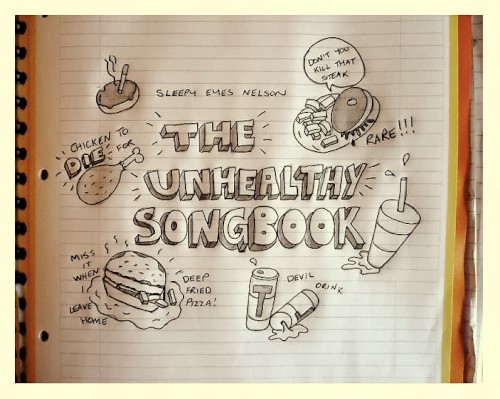 DON'T YOU
KILL THAT
STEAK
SLEEPY EYES NELSON
RARE!!!
CHICKEN TO
DIE FOR
THE
UNHEALTHY
SONGBOOK
MISS
IT
WHEN
I
LEAVE
HOME
DEEP
FRIED
PIZZA!
T
DEVIL
DRINK